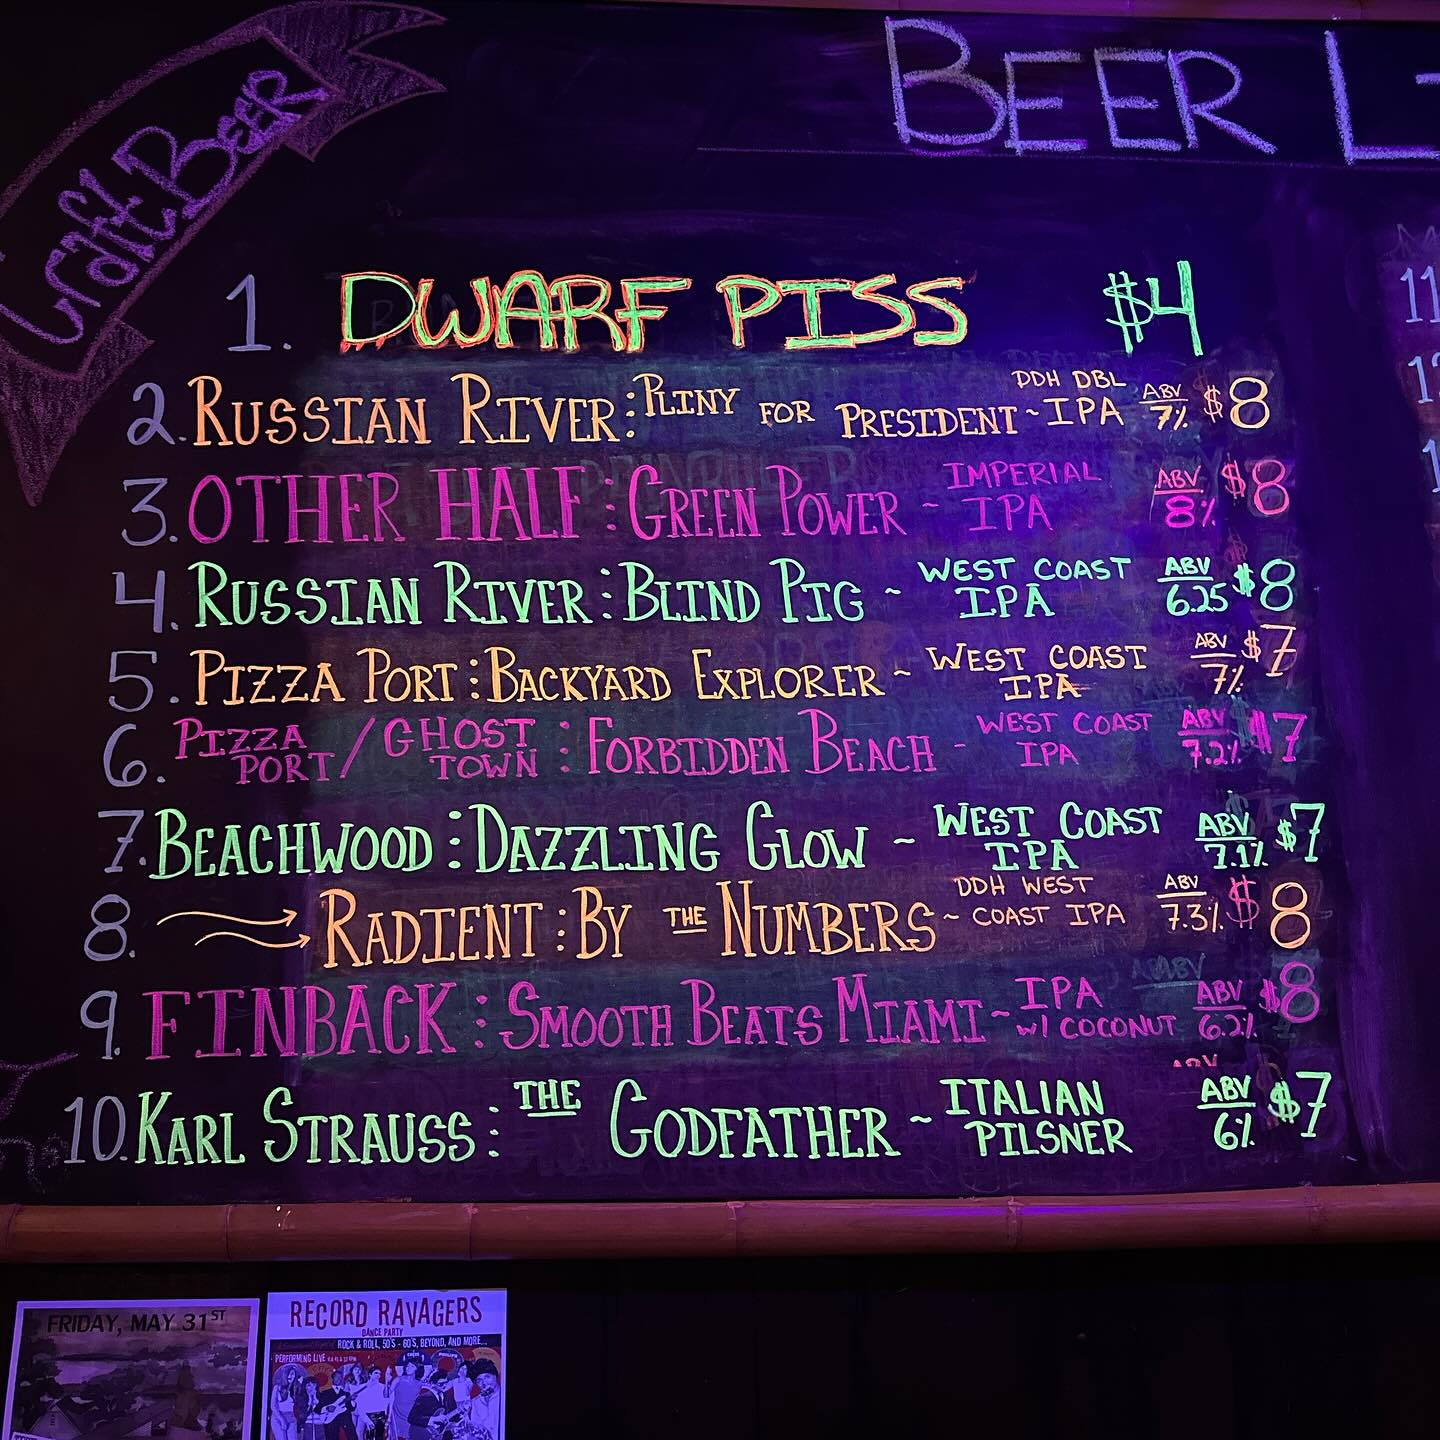 Craft Beer
BEER L
1. DWARF PISS $4
2. RUSSIAN RIVER: PLINY FOR PRESIDENT ~ DDH DBL IPA ABV 7% $8
3. OTHER HALF: GREEN POWER ~ IMPERIAL IPA ABV 8% $8
4. RUSSIAN RIVER: BLIND PIG ~ WEST COAST IPA ABV 6.25 $8
5. PIZZA PORT: BACKYARD EXPLORER ~ WEST COAST IPA ABV 7% $7
6. PIZZA PORT / GHOST TOWN: FORBIDDEN BEACH ~ WEST COAST IPA ABV 7.2% $7
7. BEACHWOOD: DAZZLING GLOW ~ WEST COAST IPA ABV 7.1% $7
8. RADIENT: BY THE NUMBERS ~ DDH WEST COAST IPA ABV 7.3% $8
9. FINBACK: SMOOTH BEATS MIAMI ~ IPA W/ COCONUT ABV 6.2% $8
10. KARL STRAUSS: THE GODFATHER ~ ITALIAN PILSNER ABV 6% $7
11
FRIDAY, MAY 31ST
RECORD RAVAGERS
DANCE PARTY
ROCK & ROLL, 50'S - 60'S, BEYOND, AND MORE...
PERFORMING LIVE